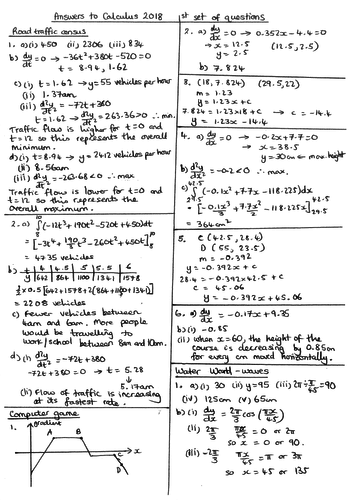 Answers to Calculus 2018
Road traffic census
1. a)(i) 450 (ii) 2306 (iii) 834
b) dy/dt = 0 → -36t² + 380t - 520 = 0
t = 8.94, 1.62
c)(i) t = 1.62 → y = 55 vehicles per hour
(ii) 1.37am
(iii) d²y/dt² = -72t + 380
t = 1.62 → d²y/dt² = 263.36 > 0 ∴ min.
Traffic flow is higher for t=0 and
t=12 so this represents the overall
minimum.
d)(i) t = 8.94 → y = 2412 vehicles per hour
(ii) 8.56am
(iii) d²y/dt² = -263.68 < 0 ∴ max
Traffic flow is lower for t=0 and
t=12 so this represents the
overall maximum.
2. a) ∫₈¹⁰ (-12t³ + 190t² - 520t + 450) dt
= [-3t⁴ + 190t³/3 - 260t² + 450t]₈¹⁰
= 4735 vehicles
b) t 4 4.5 5 5.5 6
y 642 864 1100 1341 1578
½ x 0.5 [642 + 1578 + 2(864 + 1100 + 1341)]
= 2208 vehicles
c) Fewer vehicles between
4am and 6am. More people
would be travelling to
work/school between 8am and 10am.
d)(i) d²y/dt² = -72t + 380
-72t + 380 = 0 → t = 5.28
↓
5.17am
(ii) Flow of traffic is increasing
at its fastest rate.
Computer game
1.
gradient
A B
C
D
x
1st set of questions
2. a) dy/dx = 0 → 0.352x - 4.4 = 0
→ x = 12.5 (12.5, 2.5)
y = 2.5
b) 7.824
3. (18, 7.824) (29.5, 22)
m = 1.23
y = 1.23x + c
7.824 = 1.23x18 + c → c = -14.4
y = 1.23x - 14.4
4. a) dy/dx = 0 → -0.2x + 7.7 = 0
→ x = 38.5
y = 30cm ← max height
b) d²y/dx² = -0.2 < 0 ∴ max.
c) ∫ (-0.1x² + 7.7x - 118.225) dx
42.5
29.5
= [-0.1x³/3 + 7.7x²/2 - 118.225x]
42.5
29.5
= 364cm²
5. C (42.5, 28.4)
D (55, 23.5)
m = -0.392
y = -0.392x + c
28.4 = -0.392x42.5 + c
c = 45.06
y = -0.392x + 45.06
6. a) dy/dx = -0.17x + 9.35
b)(i) -0.85
(ii) when x=60, the height of the
course is decreasing by 0.85cm
for every cm moved horizontally.
Water World - waves
1. a)(i) 30 (ii) y = 95 (iii) 2π ÷ π/45 = 90
(iv) 125cm (v) 65m
b)(i) dy/dx = 2π/3 cos(πx/45)
(ii) 2π/3 πx/45 = 0 or 2π
so x = 0 or 90.
(iii) -2π/3 πx/45 = π or 3π
so x = 45 or 135